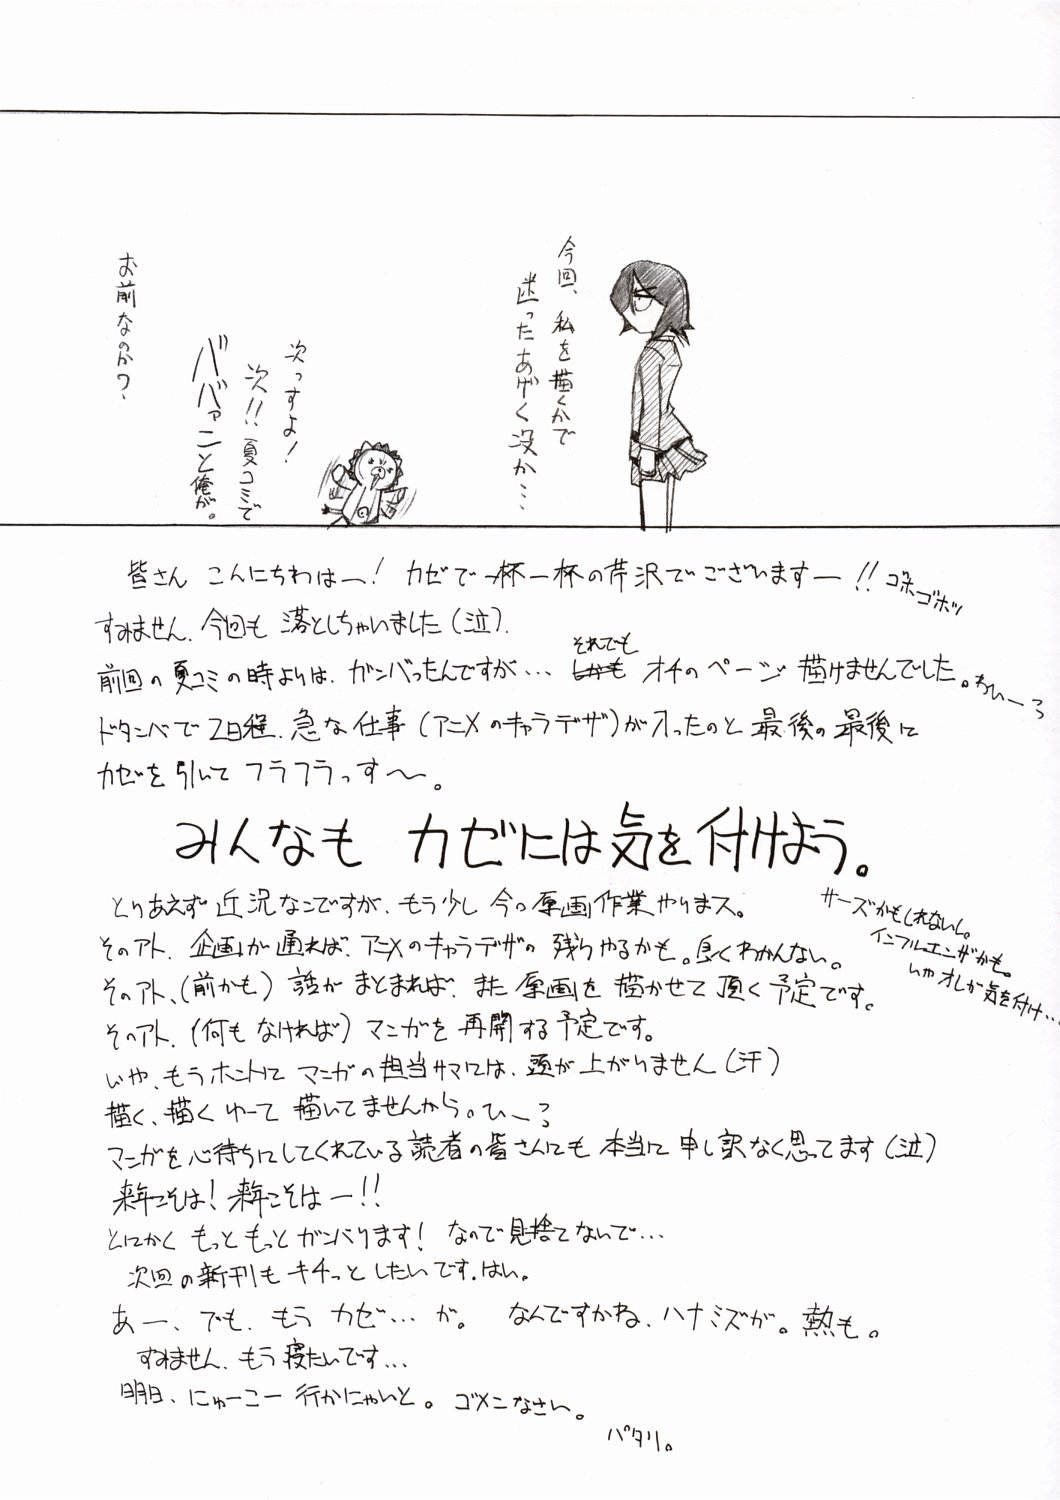 今回、私を描くかで
迷ったあげく没か…
次っすよ!
次!!夏コミで
ババァニと俺が。
お前なのか?
皆さん こんにちわはー! カゼで一杯一杯の芹沢でございますー!! ゴホゴホッ
すみません、今回も 落としちゃいました(泣)。
前回の夏コミの時よりは、ガンバったんですが… それでも オチのページ 描けませんでした。わぃーろ
ドタンバで 2日程、急な仕事(アニメのキャラデザ)が入ったのと 最後の最後に
カゼを引いて フラフラっす〜。
みんなも カゼには気を付けよう。
サーズかもしれないし。
インフルエンザかも。
いや オレが気を付け…
とりあえず 近況なこですが、もう少し 今の原画作業やりまス。
そのアト、企画が通れば、アニメのキャラデザの 残りやるかも。良くわかんない。
そのアト、(前かも) 話が まとまれば、また 原画を 描かせて 頂く 予定です。
そのアト、(何も なければ) マンガを 再開する予定です。
いや、もうホントに マンガの担当サマには、頭が上がりません(汗)
描く、描く ゆーて 描いてませんから。ひーろ
マンガを心待ちにしてくれている読者の皆さんにも 本当に 申し訳なく思ってます(泣)
来年こそは! 来年こそはー!!
とにかく もっと もっと ガンバります! なので見捨てないで…
次回の新刊も キチっと したいです。はい。
あー、でも、もう カゼ… が。 なんですかね、ハナミズが。熱も。
すみません、もう 寝たいです…
明日、にゅーこー 行かにゃいと。 ゴメンなさい。
パタリ。